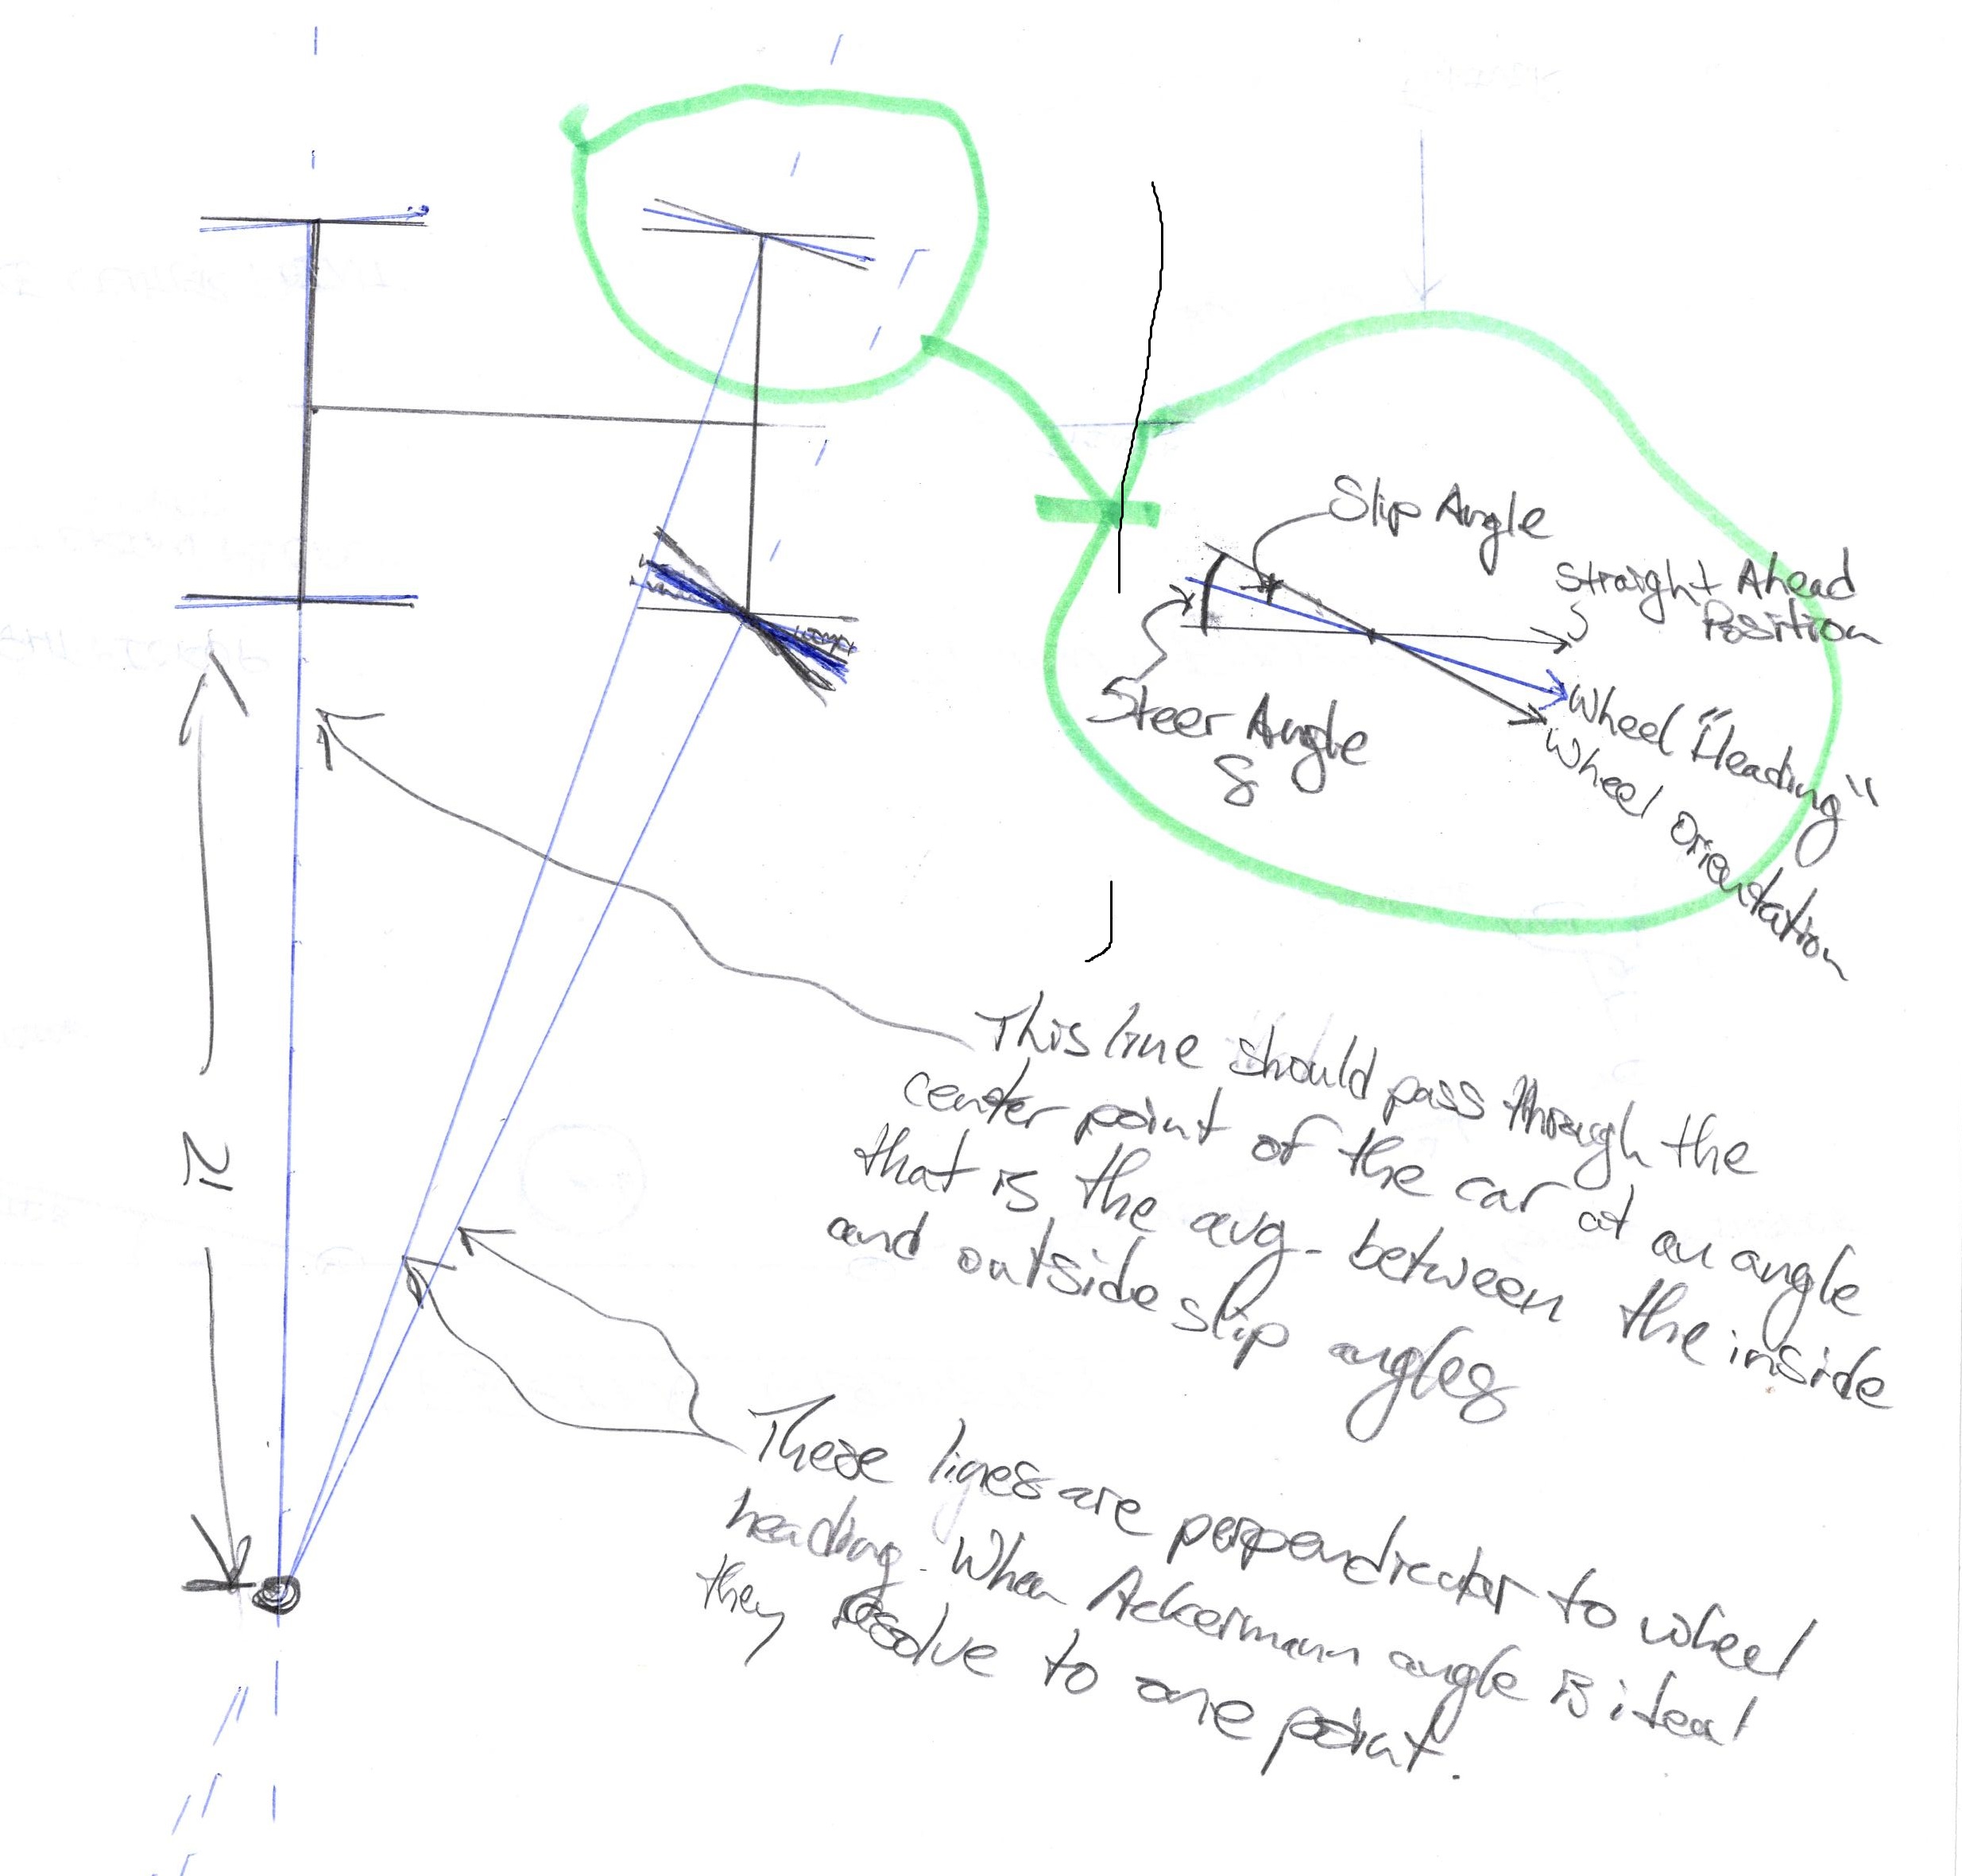 Slip Angle
Straight Ahead
Position
Wheel "Heading"
Wheel Orientation
Steer Angle
δ
This line should pass through the
center point of the car at an angle
that is the avg. between the inside
and outside slip angles
These lines are perpendicular to wheel
heading. When Ackermann angle is ideal
they resolve to one point.